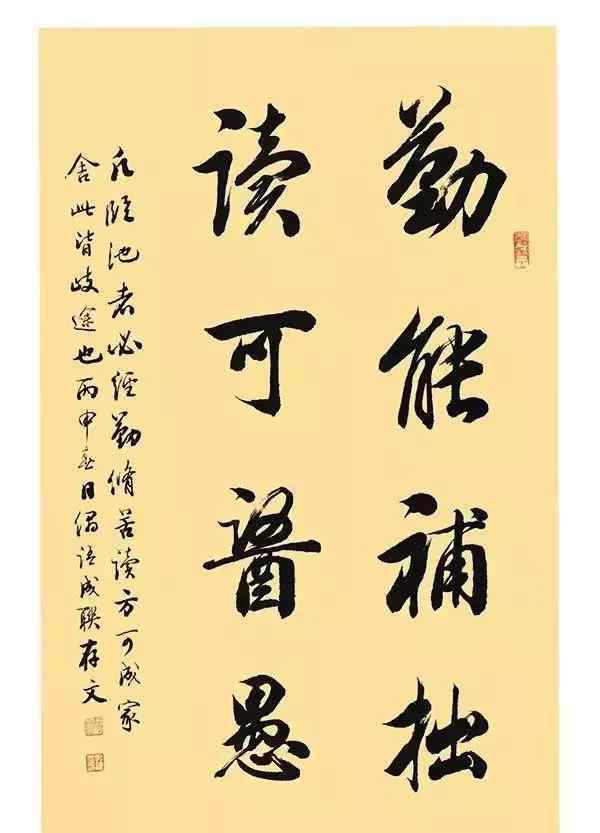 勤能補拙
读可醫愚
凡臨池者必經勤脩苦读方可成家
舍此皆歧途也丙申春日偶語成聯存文